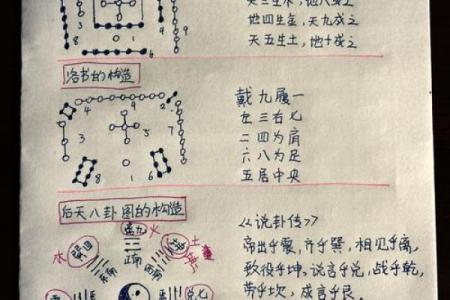 天三生木,地八成之
地四生金,天九成之
天五生土,地十成之
8
3
4
9
1
6
洛书的构造
4
9
2
3
5
7
8
1
6
戴九履一
左三右七
二四为肩
六八为足
五居中央
后天八卦图的构造
火
土
正南
东南
西南
兑七
《说卦传》
帝出乎震,齐乎巽,相见乎离,
致役乎坤,说言乎兑,战乎乾,
劳乎坎,成言乎艮.